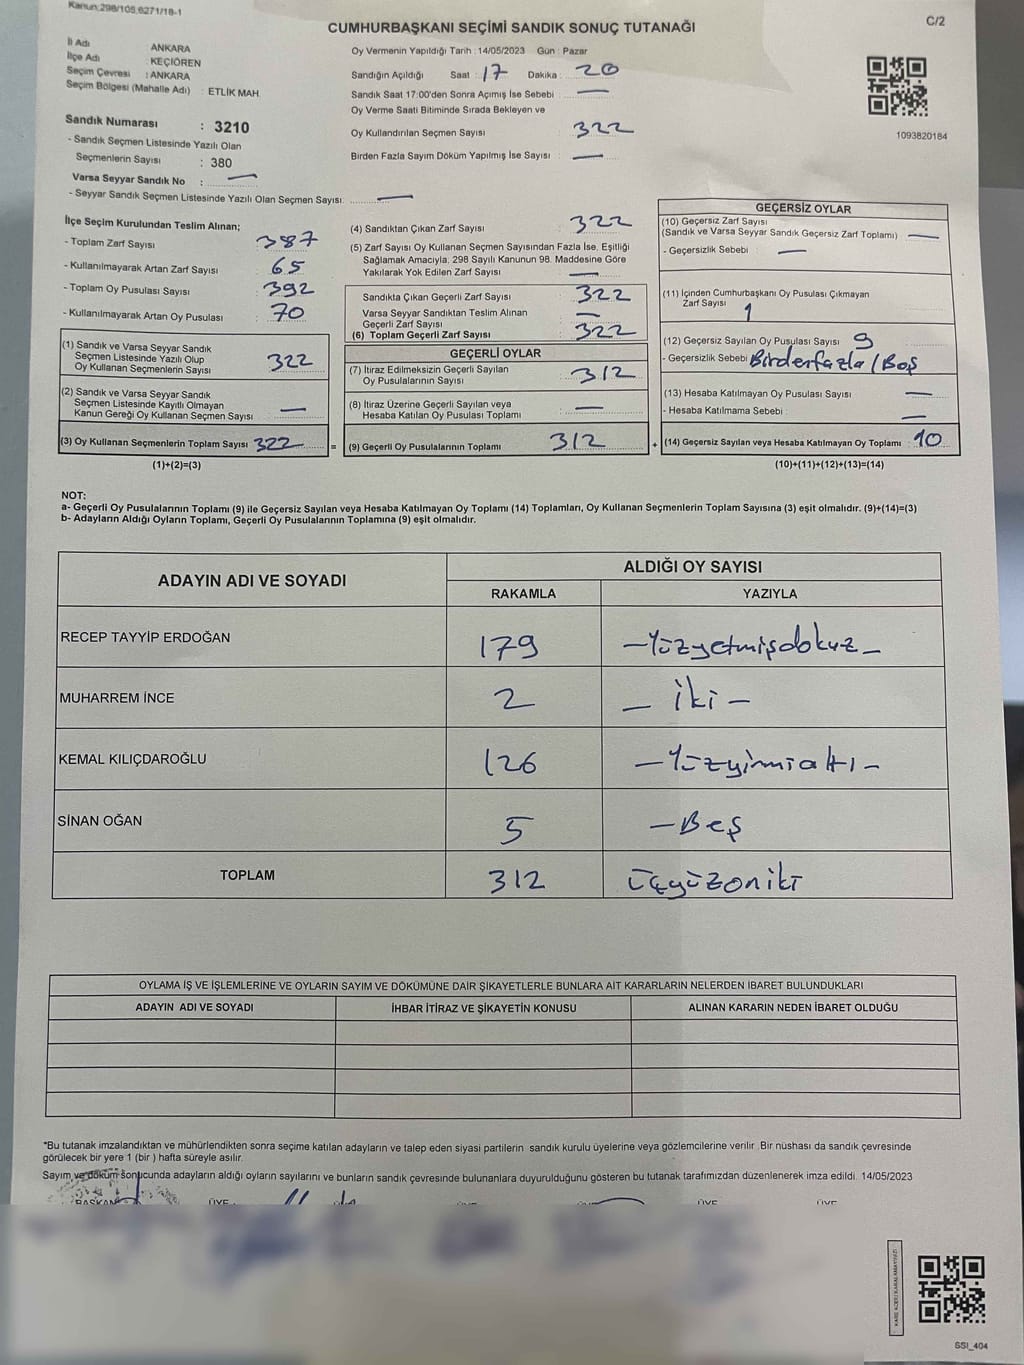 Kanun:298/105,6271/18-1
CUMHURBAŞKANI SEÇİMİ SANDIK SONUÇ TUTANAĞI
C/2
İl Adı ANKARA
İlçe Adı : KEÇİÖREN
Seçim Çevresi : ANKARA
Seçim Bölgesi (Mahalle Adı) : ETLİK MAH.
Oy Vermenin Yapıldığı Tarih : 14/05/2023 Gün : Pazar
Sandığın Açıldığı Saat : 17 Dakika : 20
Sandık Saat 17:00'den Sonra Açımış İse Sebebi : —
Oy Verme Saati Bitiminde Sırada Bekleyen ve
Oy Kullandırılan Seçmen Sayısı 322
Birden Fazla Sayım Döküm Yapılmış İse Sayısı : —
1093820184
Sandık Numarası : 3210
- Sandık Seçmen Listesinde Yazılı Olan
Seçmenlerin Sayısı : 380
Varsa Seyyar Sandık No : —
- Seyyar Sandık Seçmen Listesinde Yazılı Olan Seçmen Sayısı: —
İlçe Seçim Kurulundan Teslim Alınan;
- Toplam Zarf Sayısı 387
- Kullanılmayarak Artan Zarf Sayısı 65
- Toplam Oy Pusulası Sayısı 392
- Kullanılmayarak Artan Oy Pusulası 70
(1) Sandık ve Varsa Seyyar Sandık
Seçmen Listesinde Yazılı Olup
Oy Kullanan Seçmenlerin Sayısı 322
(2) Sandık ve Varsa Seyyar Sandık
Seçmen Listesinde Kayıtlı Olmayan
Kanun Gereği Oy Kullanan Seçmen Sayısı —
(3) Oy Kullanan Seçmenlerin Toplam Sayısı 322
(1)+(2)=(3)
(4) Sandıktan Çıkan Zarf Sayısı 322
(5) Zarf Sayısı Oy Kullanan Seçmen Sayısından Fazla İse, Eşitliği
Sağlamak Amacıyla, 298 Sayılı Kanunun 98. Maddesine Göre
Yakılarak Yok Edilen Zarf Sayısı —
Sandıkta Çıkan Geçerli Zarf Sayısı 322
Varsa Seyyar Sandıktan Teslim Alınan
Geçerli Zarf Sayısı —
(6) Toplam Geçerli Zarf Sayısı 322
GEÇERLİ OYLAR
(7) İtiraz Edilmeksizin Geçerli Sayılan
Oy Pusulalarının Sayısı : 312
(8) İtiraz Üzerine Geçerli Sayılan veya
Hesaba Katılan Oy Pusulası Toplamı : —
= (9) Geçerli Oy Pusulalarının Toplamı 312 +
GEÇERSİZ OYLAR
(10) Geçersiz Zarf Sayısı
(Sandık ve Varsa Seyyar Sandık Geçersiz Zarf Toplamı) —
- Geçersizlik Sebebi : —
(11) İçinden Cumhurbaşkanı Oy Pusulası Çıkmayan
Zarf Sayısı 1
(12) Geçersiz Sayılan Oy Pusulası Sayısı 9
- Geçersizlik Sebebi Birden fazla / Boş
(13) Hesaba Katılmayan Oy Pusulası Sayısı —
- Hesaba Katılmama Sebebi : —
(14) Geçersiz Sayılan veya Hesaba Katılmayan Oy Toplamı : 10
(10)+(11)+(12)+(13)=(14)
NOT:
a- Geçerli Oy Pusulalarının Toplamı (9) ile Geçersiz Sayılan veya Hesaba Katılmayan Oy Toplamı (14) Toplamları, Oy Kullanan Seçmenlerin Toplam Sayısına (3) eşit olmalıdır. (9)+(14)=(3)
b- Adayların Aldığı Oyların Toplamı, Geçerli Oy Pusulalarının Toplamına (9) eşit olmalıdır.
ADAYIN ADI VE SOYADI ALDIĞI OY SAYISI
RAKAMLA YAZIYLA
RECEP TAYYİP ERDOĞAN 179 —Yüzyetmişdokuz—
MUHARREM İNCE 2 — iki —
KEMAL KILIÇDAROĞLU 126 — Yüzyirmialtı —
SİNAN OĞAN 5 — Beş
TOPLAM 312 üçyüzoniki
OYLAMA İŞ VE İŞLEMLERİNE VE OYLARIN SAYIM VE DÖKÜMÜNE DAİR ŞİKAYETLERLE BUNLARA AİT KARARLARIN NELERDEN İBARET BULUNDUKLARI
ADAYIN ADI VE SOYADI İHBAR İTİRAZ VE ŞİKAYETİN KONUSU ALINAN KARARIN NEDEN İBARET OLDUĞU
*Bu tutanak imzalandıktan ve mühürlendikten sonra seçime katılan adayların ve talep eden siyasi partilerin sandık kurulu üyelerine veya gözlemcilerine verilir. Bir nüshası da sandık çevresinde
görülecek bir yere 1 (bir ) hafta süreyle asılır.
Sayım ve döküm sonucunda adayların aldığı oyların sayılarını ve bunların sandık çevresinde bulunanlara duyurulduğunu gösteren bu tutanak tarafımızdan düzenlenerek imza edildi. 14/05/2023
BAŞKAN ÜYE ÜYE ÜYE
SSI_404